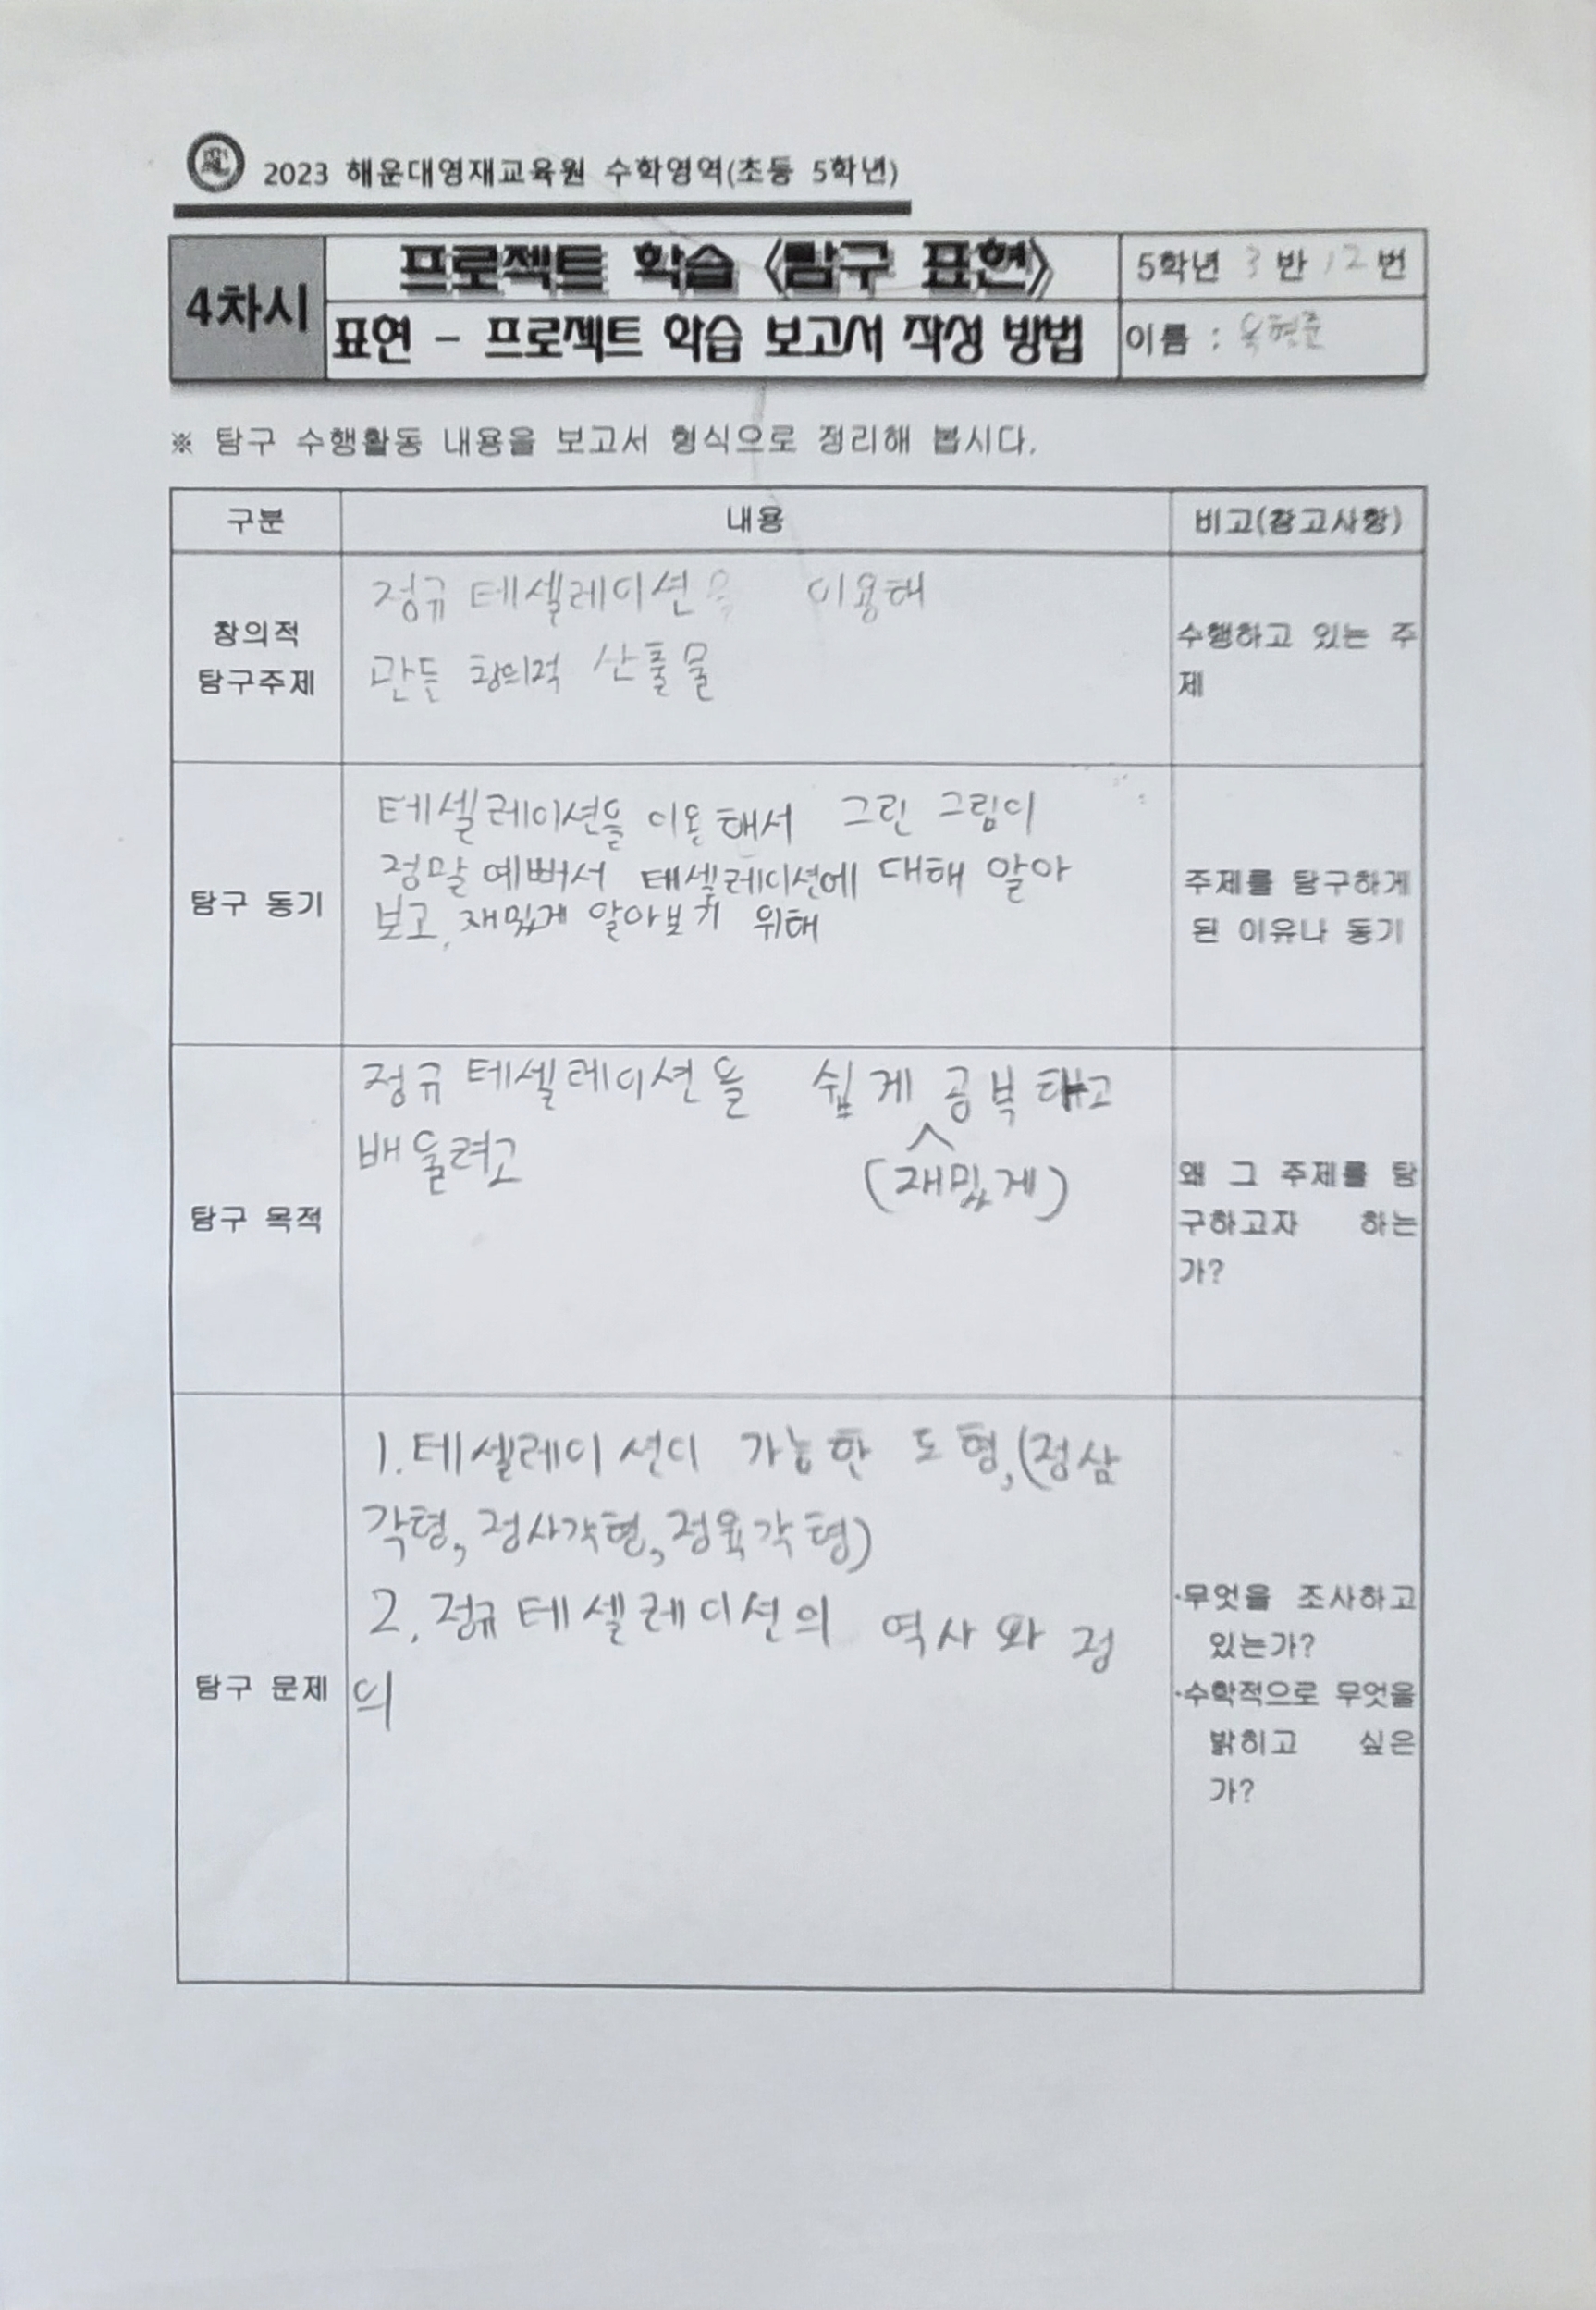 2023 해운대영재교육원 수학영역(초등 5학년)
4차시
프로젝트 학습 〈탐구 표현〉
5학년 3 반 12 번
표현 - 프로젝트 학습 보고서 작성 방법
이름 : 옥현준
※ 탐구 수행활동 내용을 보고서 형식으로 정리해 봅시다.
구분
내용
비고(참고사항)
창의적
탐구주제
정규 테셀레이션을 이용해
만든 창의적 산출물
수행하고 있는 주
제
탐구 동기
테셀레이션을 이용해서 그린 그림이
정말 예뻐서 테셀레이션에 대해 알아
보고, 재밌게 알아보기 위해
주제를 탐구하게
된 이유나 동기
탐구 목적
정규 테셀레이션을 쉽게 공부하고
배울려고 (재밌게)
왜 그 주제를 탐
구하고자 하는
가?
탐구 문제
1. 테셀레이션이 가능한 도형,(정삼
각형, 정사각형, 정육각형)
2. 정규 테셀레이션의 역사와 정
의
·무엇을 조사하고
있는가?
·수학적으로 무엇을
밝히고 싶은
가?